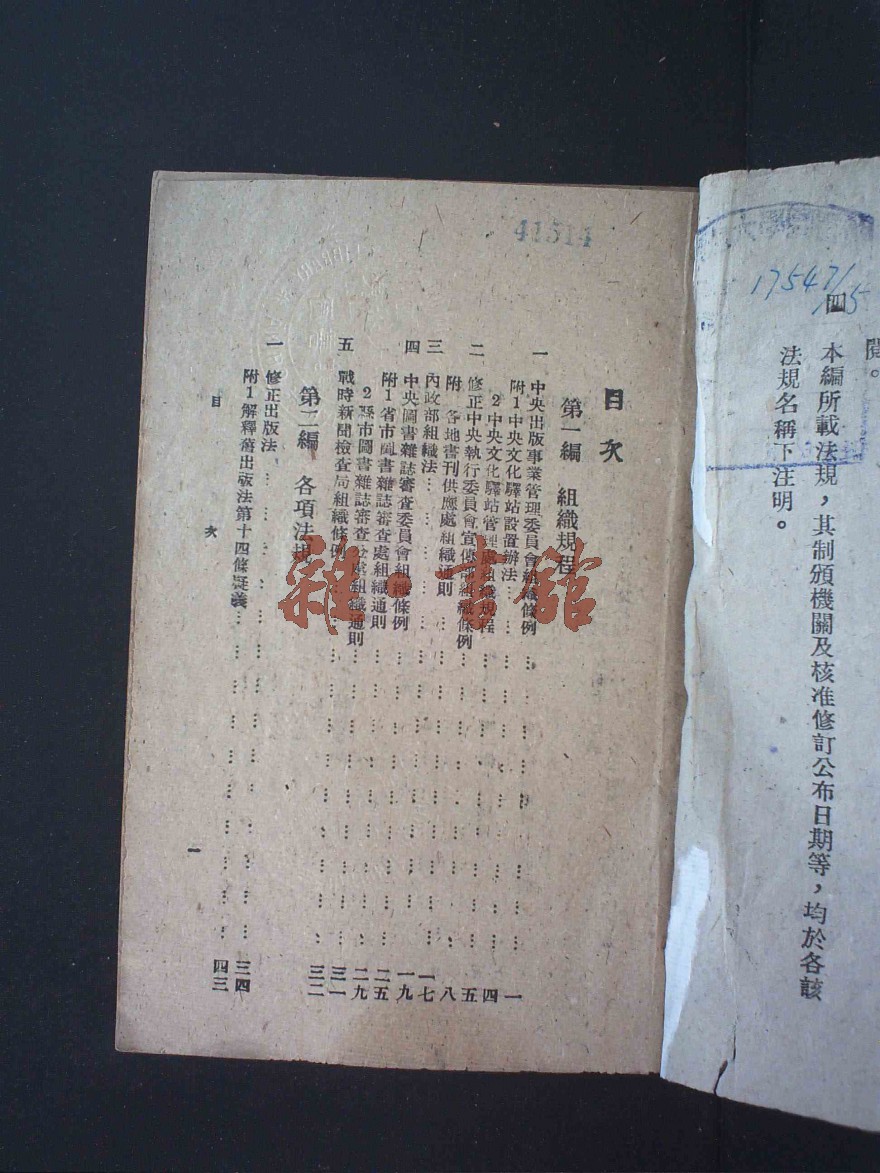 閱。
四 本編所載法規，其制頒機關及核准修訂公布日期等，均於各該
法規名稱下注明。
17547/15
41514
目次
第一編 組織規程
一 中央出版事業管理委員會組織條例…………一
附1中央文化驛站設置辦法…………四
2中央文化驛站管理處組織規程…………五
二 修正中央執行委員會宣傳部組織條例…………八
附 各地書刊供應處組織通則…………一七
三 內政部組織法…………一九
四 中央圖書雜誌審查委員會組織條例…………二五
附1省市圖書雜誌審查處組織通則…………二九
2縣市圖書雜誌審查分處組織通則…………三一
五 戰時新聞檢查局組織條例…………三二
第二編 各項法規
一 修正出版法…………三四
附1解釋舊出版法第十四條疑義…………四三
目 次 一
雜·書館